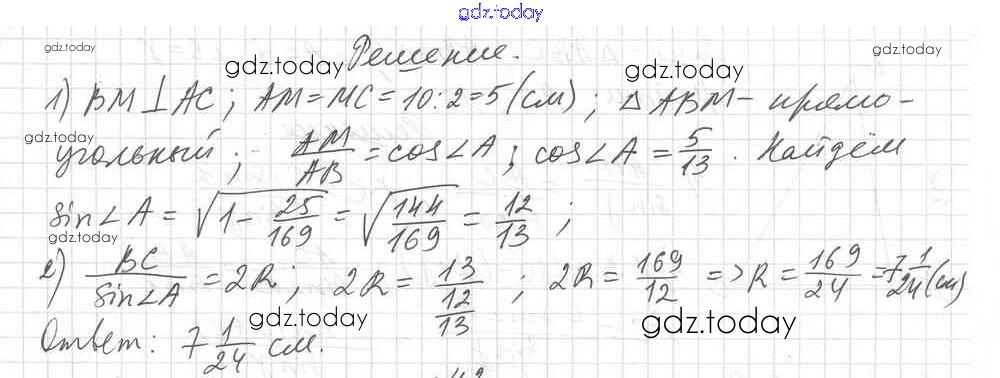 gdz.today
gdz.today Решение. gdz.today
gdz.today gdz.today
1) BM ⊥ AC; AM = MC = 10 : 2 = 5 (см); △ABM – прямо-
gdz.today
угольный; AM/AB = cos∠A; cos∠A = 5/13. Найдём
sin∠A = √(1 - 25/169) = √(144/169) = 12/13;
gdz.today
2) BC/sin∠A = 2R; 2R = 13/(12/13); 2R = 169/12 => R = 169/24 = 7 1/24 (см)
gdz.today gdz.today
Ответ: 7 1/24 см.